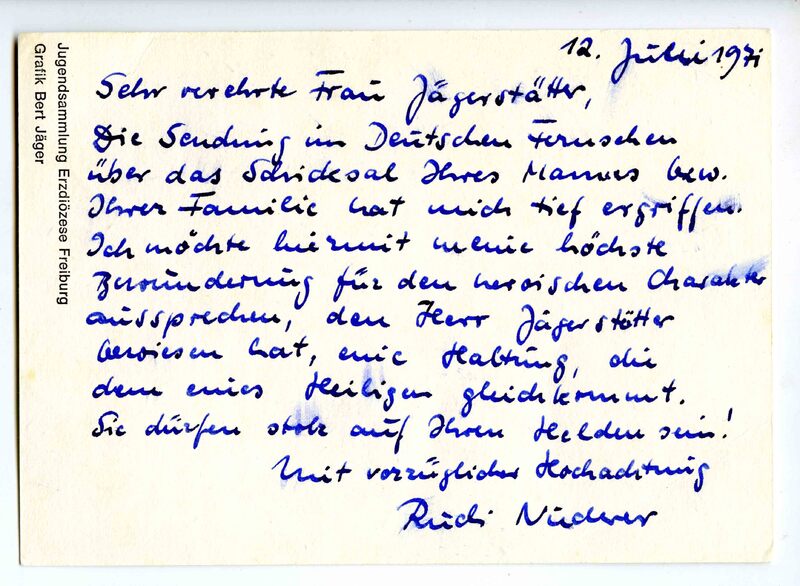 12. Juli 1971
Sehr verehrte Frau Jägerstätter,
Die Sendung im Deutschen Fernsehen
über das Schicksal Ihres Mannes bzw.
Ihrer Familie hat mich tief ergriffen.
Ich möchte hiermit meine höchste
Bewunderung für den heroischen Charakter
aussprechen, den Herr Jägerstätter
bewiesen hat, eine Haltung, die
dem eines Heiligen gleichkommt.
Sie dürfen stolz auf Ihren Helden sein!
Mit vorzüglicher Hochachtung
Rudi Nuderer
Jugendsammlung Erzdiözese Freiburg
Grafik Bert Jäger